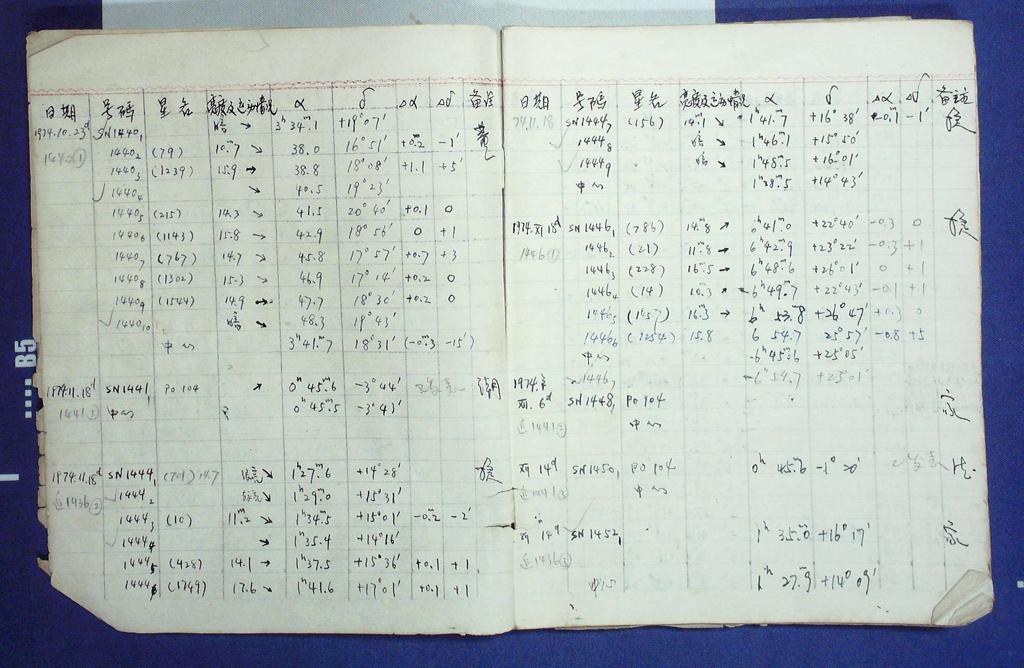 日期 号码 星名 亮度及运动情况 α δ Δα Δδ 备注
1974.10.23ᵈ SN1440₁ 暗 ↘ 3ʰ34ᵐ.1 +19°07′
1440① 1440₂ (79) 10.ᵐ7 ↘ 38.0 16°51′ +0.2 -1′
1440₃ (1239) 15.9 → 38.8 18°08′ +1.1 +5′
1440₄ ↘ 40.5 19°23′
1440₅ (215) 14.3 ↘ 41.5 20°40′ +0.1 0
1440₆ (1143) 15.8 → 42.9 18°56′ 0 +1
1440₇ (767) 14.7 ↘ 45.8 17°57′ +0.7 +3
1440₈ (1302) 15.3 ↘ 46.9 17°14′ +0.2 0
1440₉ (1544) 14.9 → 47.7 18°30′ +0.2 0
1440₁₀ 暗 ↘ 48.3 19°43′
中心 3ʰ41ᵐ.7 18°31′ (-0ᵐ.3 -15′)
1974.11.18ᵈ SN1441₁ PO 104 ↗ 0ʰ45ᵐ.6 -3°44′
1441① 中心 0ʰ45ᵐ.5 -3°43′
1974.11.18ᵈ SN1444₁ (701) 14.7 ↘ 1ʰ27ᵐ.6 +14°28′
近1436② 1444₂ ↘ 1ʰ29ᵐ.0 +15°31′
1444₃ (10) 11.2 ↘ 1ʰ34ᵐ.5 +15°01′ -0.2 -2′
1444₄ ↘ 1ʰ35.4 +14°16′
1444₅ (428) 14.1 → 1ʰ37.5 +15°36′ +0.1 +1
1444₆ (1749) 17.6 ↘ 1ʰ41.6 +17°01′ +0.1 +1
日期 号码 星名 亮度及运动情况 α δ Δα Δδ 备注
74.11.18 SN1444₇ (156) 14.ᵐ1 ↘ 1ʰ41.7 +16°38′ -0.1 -1′
1444₈ 暗 ↘ 1ʰ46.1 +15°50′
1444₉ 暗 ↘ 1ʰ48.5 +16°01′
中心 1ʰ28ᵐ.5 +14°43′
SN1446₁ (786) 14.ᵐ8 ↗ 6ʰ41ᵐ.0 +22°40′ -0.3 0
1446① 1446₂ (21) 11.ᵐ8 → 6ʰ42ᵐ.9 +23°22′ -0.3 +1
1446₃ (228) 16.ᵐ5 → 6ʰ48ᵐ.6 +26°01′ 0 +1
1446₄ (14) 10.ᵐ3 6ʰ49ᵐ.7 +22°43′ -0.1 +1
1446₅ 16.ᵐ3 → 6ʰ53ᵐ.8 +26°47′ +0.3 0
1446₆ (1254) 15.8 6 54.7 25°57′ -0.8 +5
中心 6ʰ45ᵐ.6 +25°05′
1446₇ 6ʰ54.7 +25°01′
6ᵈ SN1448₁ PO 104
近1441② 中心
14ᵈ SN1450₁ PO 104 0ʰ 45ᵐ.6 -1°20′
近1441③ 中心
14ᵈ SN1452₁ 1ʰ 35ᵐ.0 +16°17′
近1436③
中心 1ʰ 27ᵐ.9 +14°09′
B5